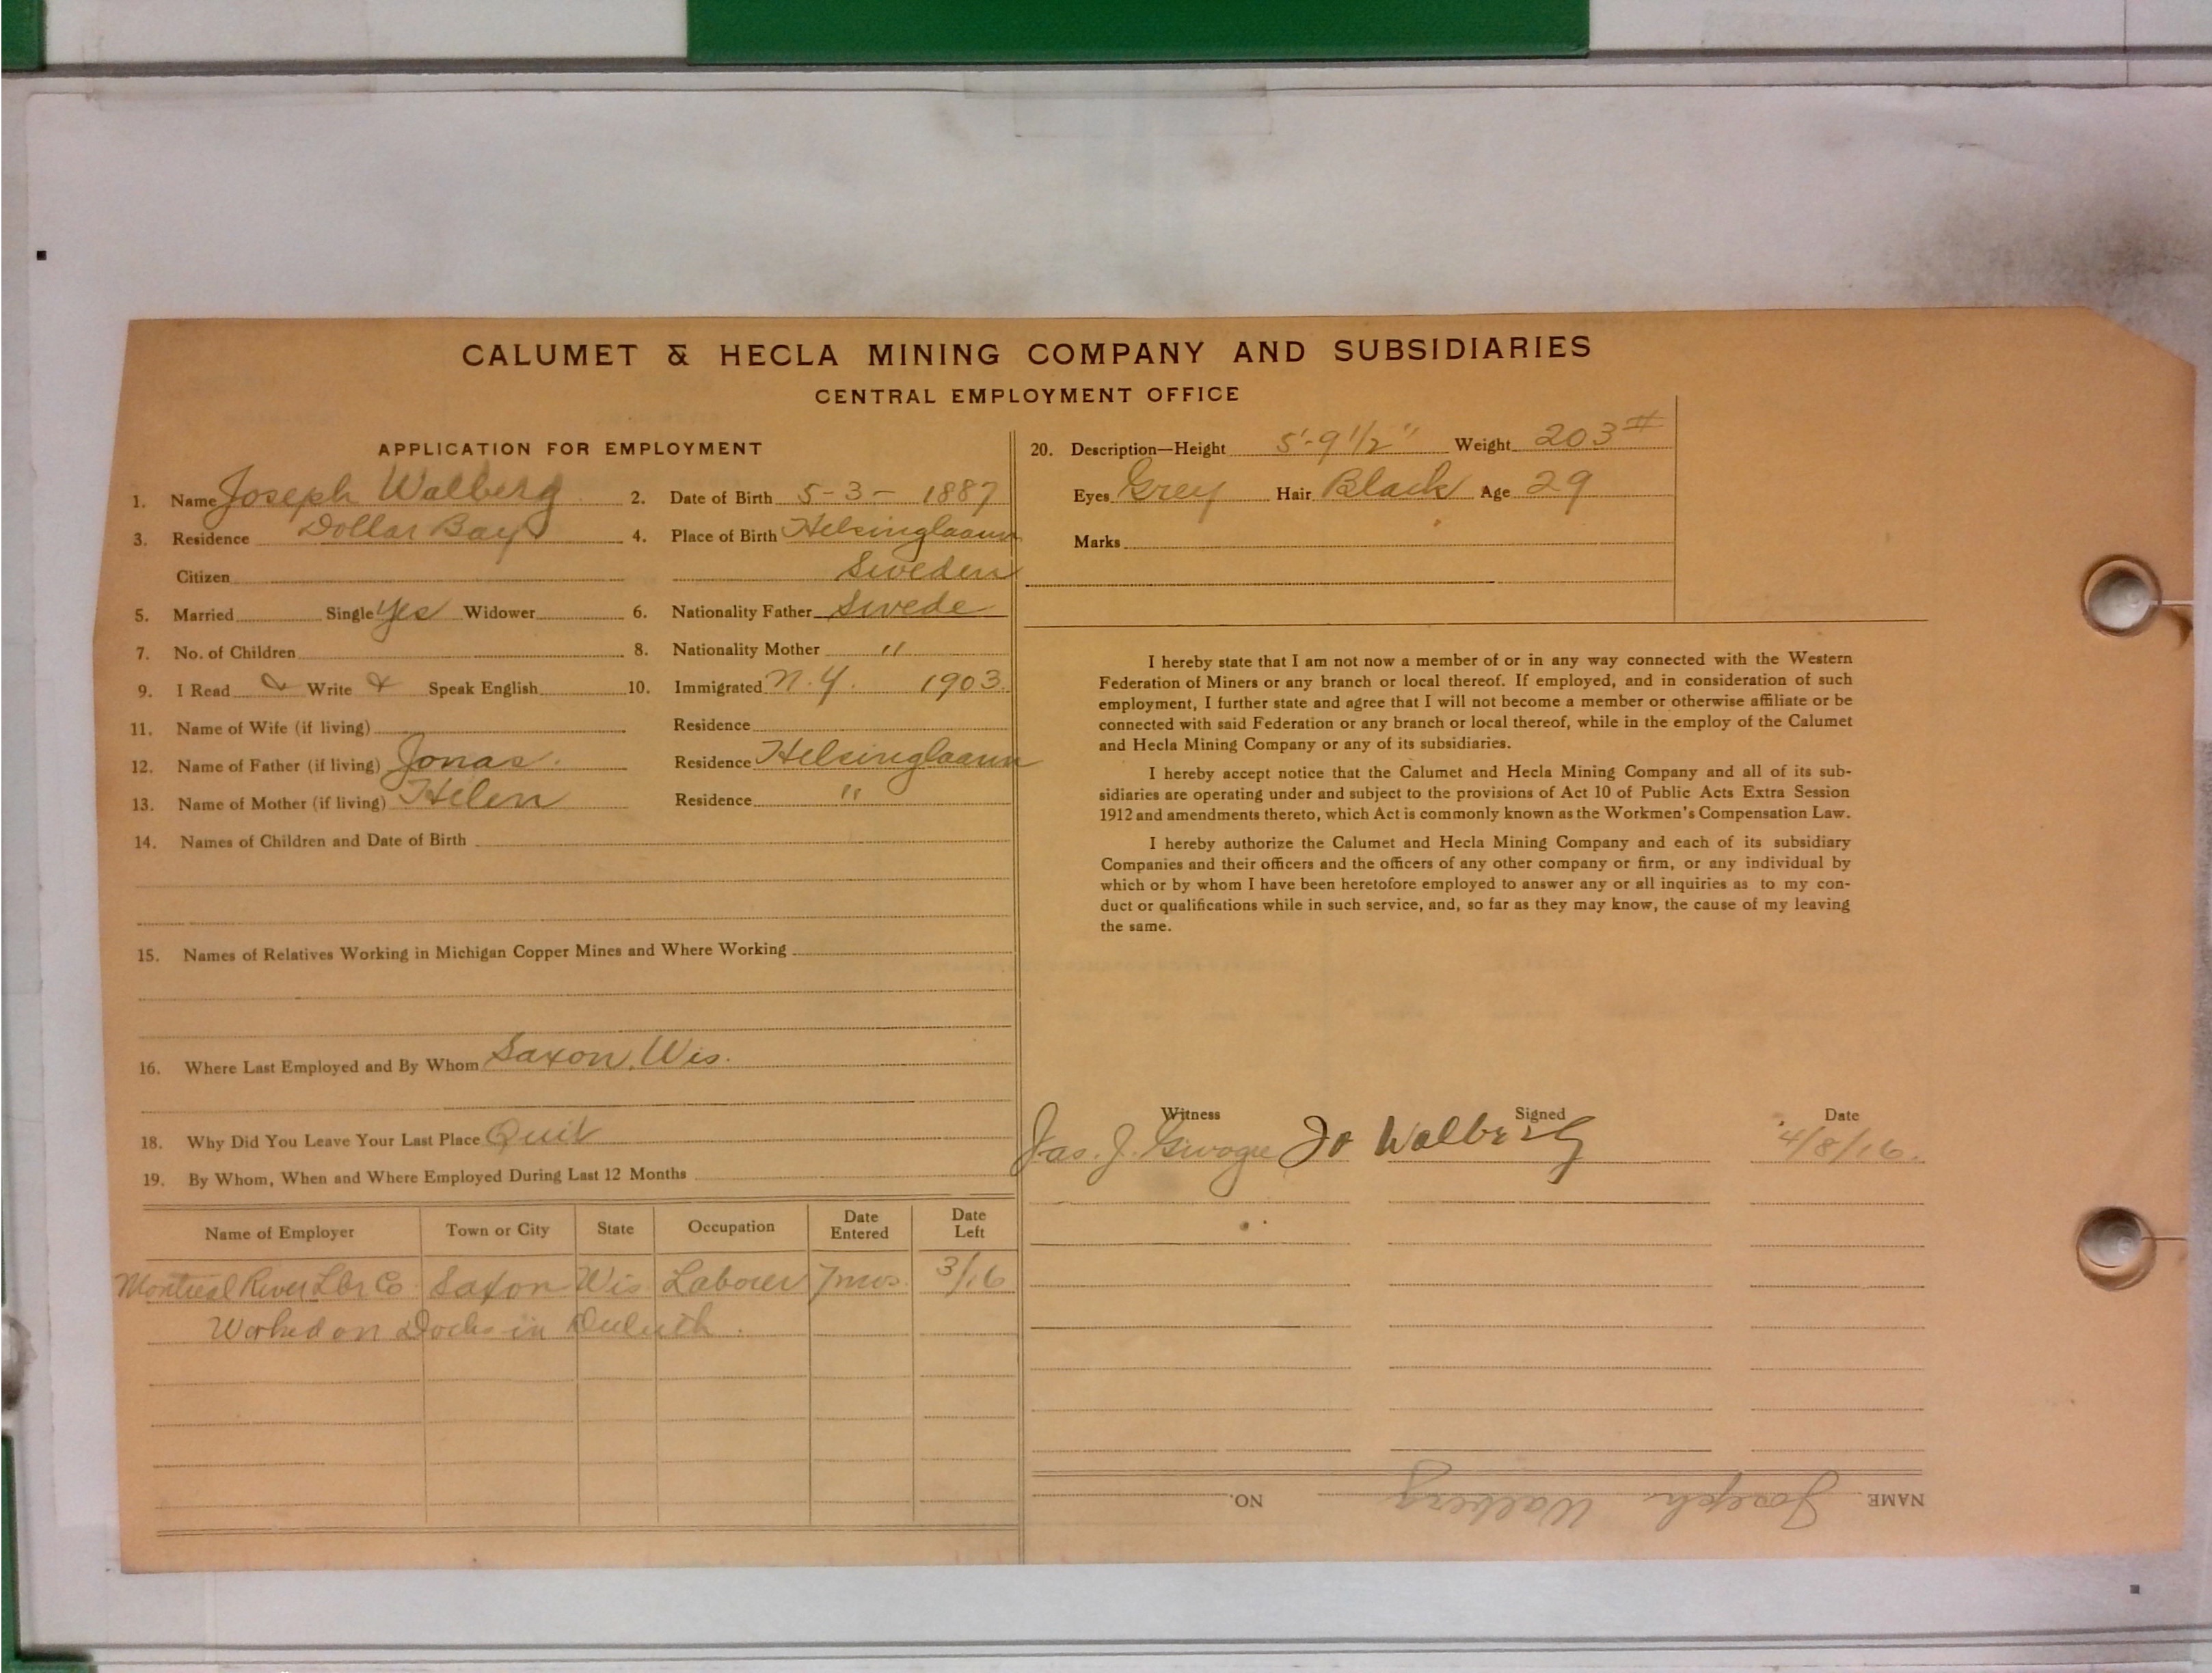 CALUMET & HECLA MINING COMPANY AND SUBSIDIARIES
CENTRAL EMPLOYMENT OFFICE
APPLICATION FOR EMPLOYMENT
1. Name Joseph Walberg 2. Date of Birth 5-3-1887
3. Residence Dollar Bay 4. Place of Birth Helsinglaann
Citizen Sweden
5. Married Single yes Widower 6. Nationality Father Swede
7. No. of Children 8. Nationality Mother "
9. I Read & Write & Speak English 10. Immigrated N.Y. 1903
11. Name of Wife (if living) Residence
12. Name of Father (if living) Jonas. Residence Helsinglaann
13. Name of Mother (if living) Helen Residence "
14. Names of Children and Date of Birth
15. Names of Relatives Working in Michigan Copper Mines and Where Working
16. Where Last Employed and By Whom Saxon, Wis.
18. Why Did You Leave Your Last Place Quit
19. By Whom, When and Where Employed During Last 12 Months
Name of Employer Town or City State Occupation Date Entered Date Left
Montreal River Lbr Co Saxon Wis Laborer 7 mos. 3/16
Worked on Docks in Duluth.
20. Description—Height 5'-9 1/2" Weight 203 #
Eyes Grey Hair Black Age 29
Marks
I hereby state that I am not now a member of or in any way connected with the Western
Federation of Miners or any branch or local thereof. If employed, and in consideration of such
employment, I further state and agree that I will not become a member or otherwise affiliate or be
connected with said Federation or any branch or local thereof, while in the employ of the Calumet
and Hecla Mining Company or any of its subsidiaries.
I hereby accept notice that the Calumet and Hecla Mining Company and all of its sub-
sidiaries are operating under and subject to the provisions of Act 10 of Public Acts Extra Session
1912 and amendments thereto, which Act is commonly known as the Workmen's Compensation Law.
I hereby authorize the Calumet and Hecla Mining Company and each of its subsidiary
Companies and their officers and the officers of any other company or firm, or any individual by
which or by whom I have been heretofore employed to answer any or all inquiries as to my con-
duct or qualifications while in such service, and, so far as they may know, the cause of my leaving
the same.
Witness Signed Date
Jas. J. Jo Walberg 4/8/16.
NAME Joseph Walberg NO.